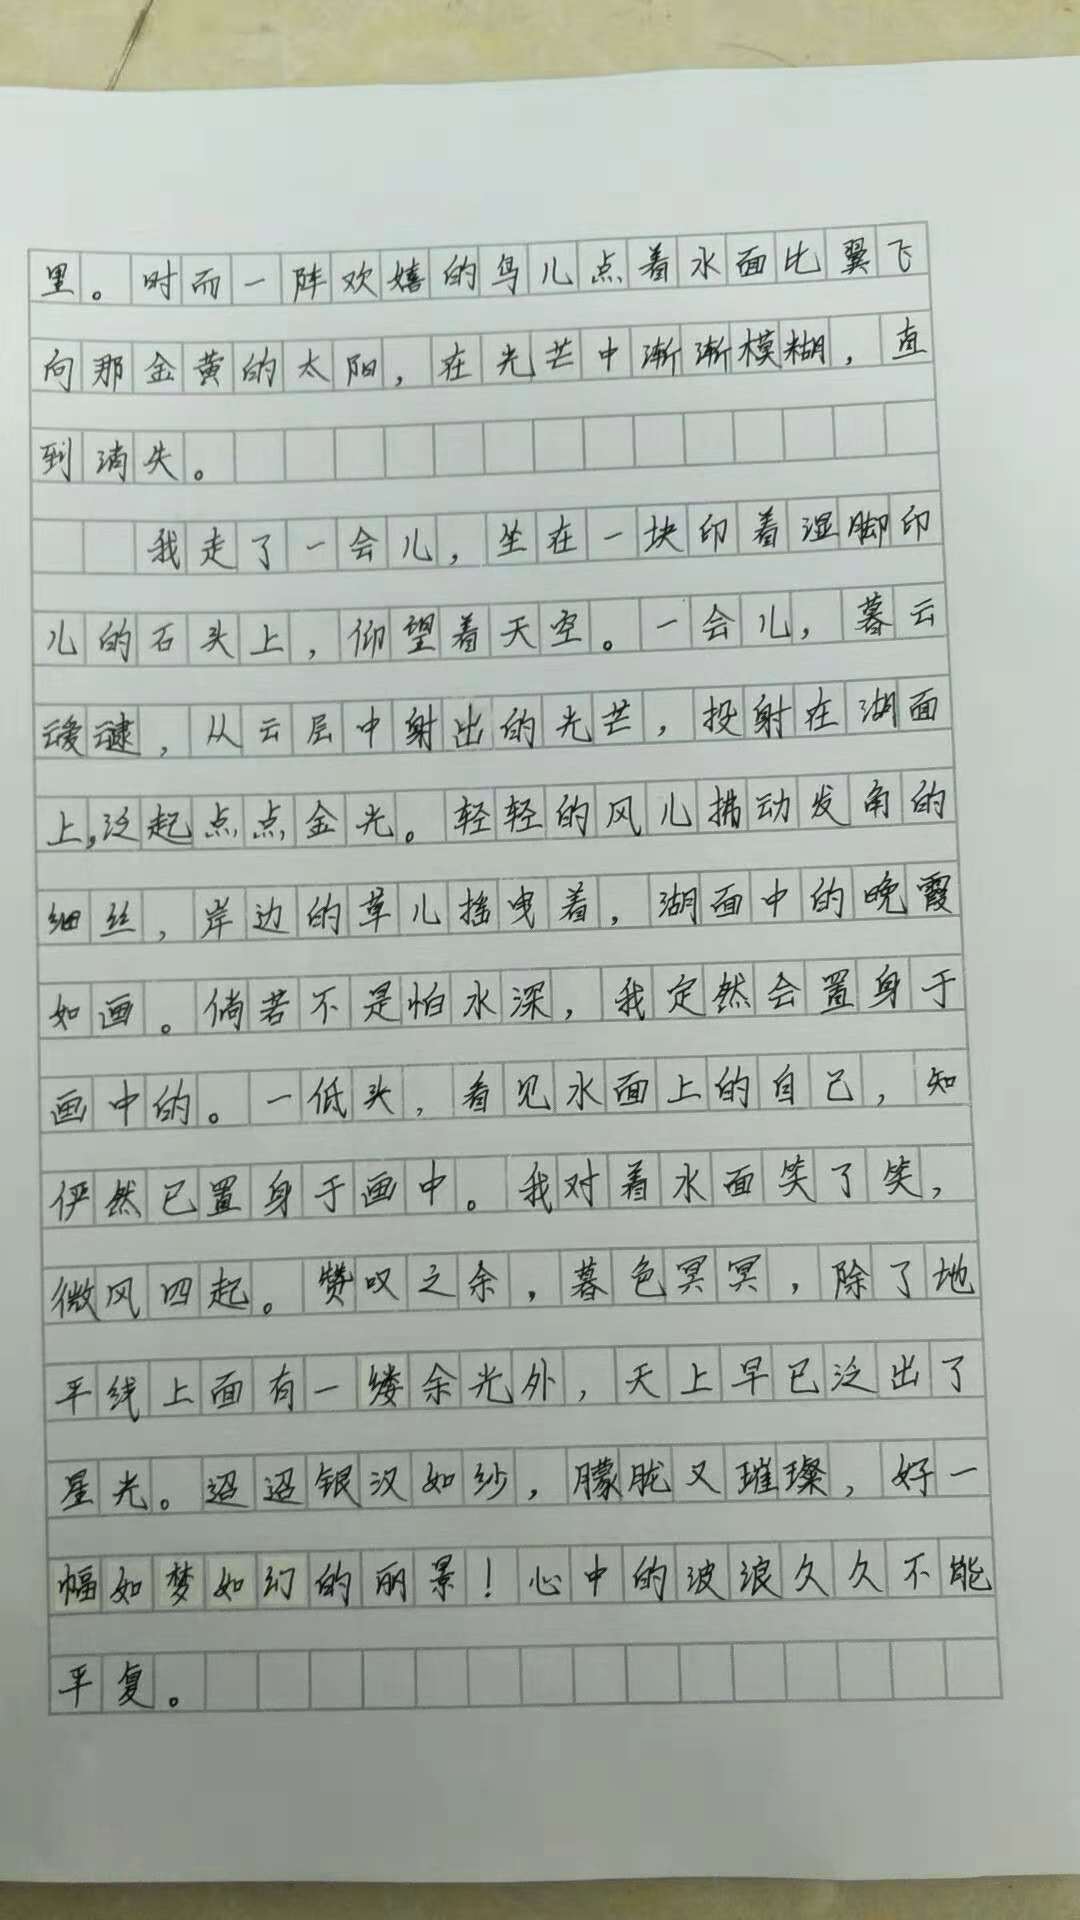 里。时而一阵欢嬉的鸟儿点着水面比翼飞
向那金黄的太阳，在光芒中渐渐模糊，直
到消失。
我走了一会儿，坐在一块印着湿脚印
儿的石头上，仰望着天空。一会儿，暮云
叆叇，从云层中射出的光芒，投射在湖面
上，泛起点点金光。轻轻的风儿拂动发角的
细丝，岸边的草儿摇曳着，湖面中的晚霞
如画。倘若不是怕水深，我定然会置身于
画中的。一低头，看见水面上的自己，知
俨然已置身于画中。我对着水面笑了笑，
微风四起。赞叹之余，暮色冥冥，除了地
平线上面有一缕余光外，天上早已泛出了
星光。迢迢银汉如纱，朦胧又璀璨，好一
幅如梦如幻的丽景！心中的波浪久久不能
平复。